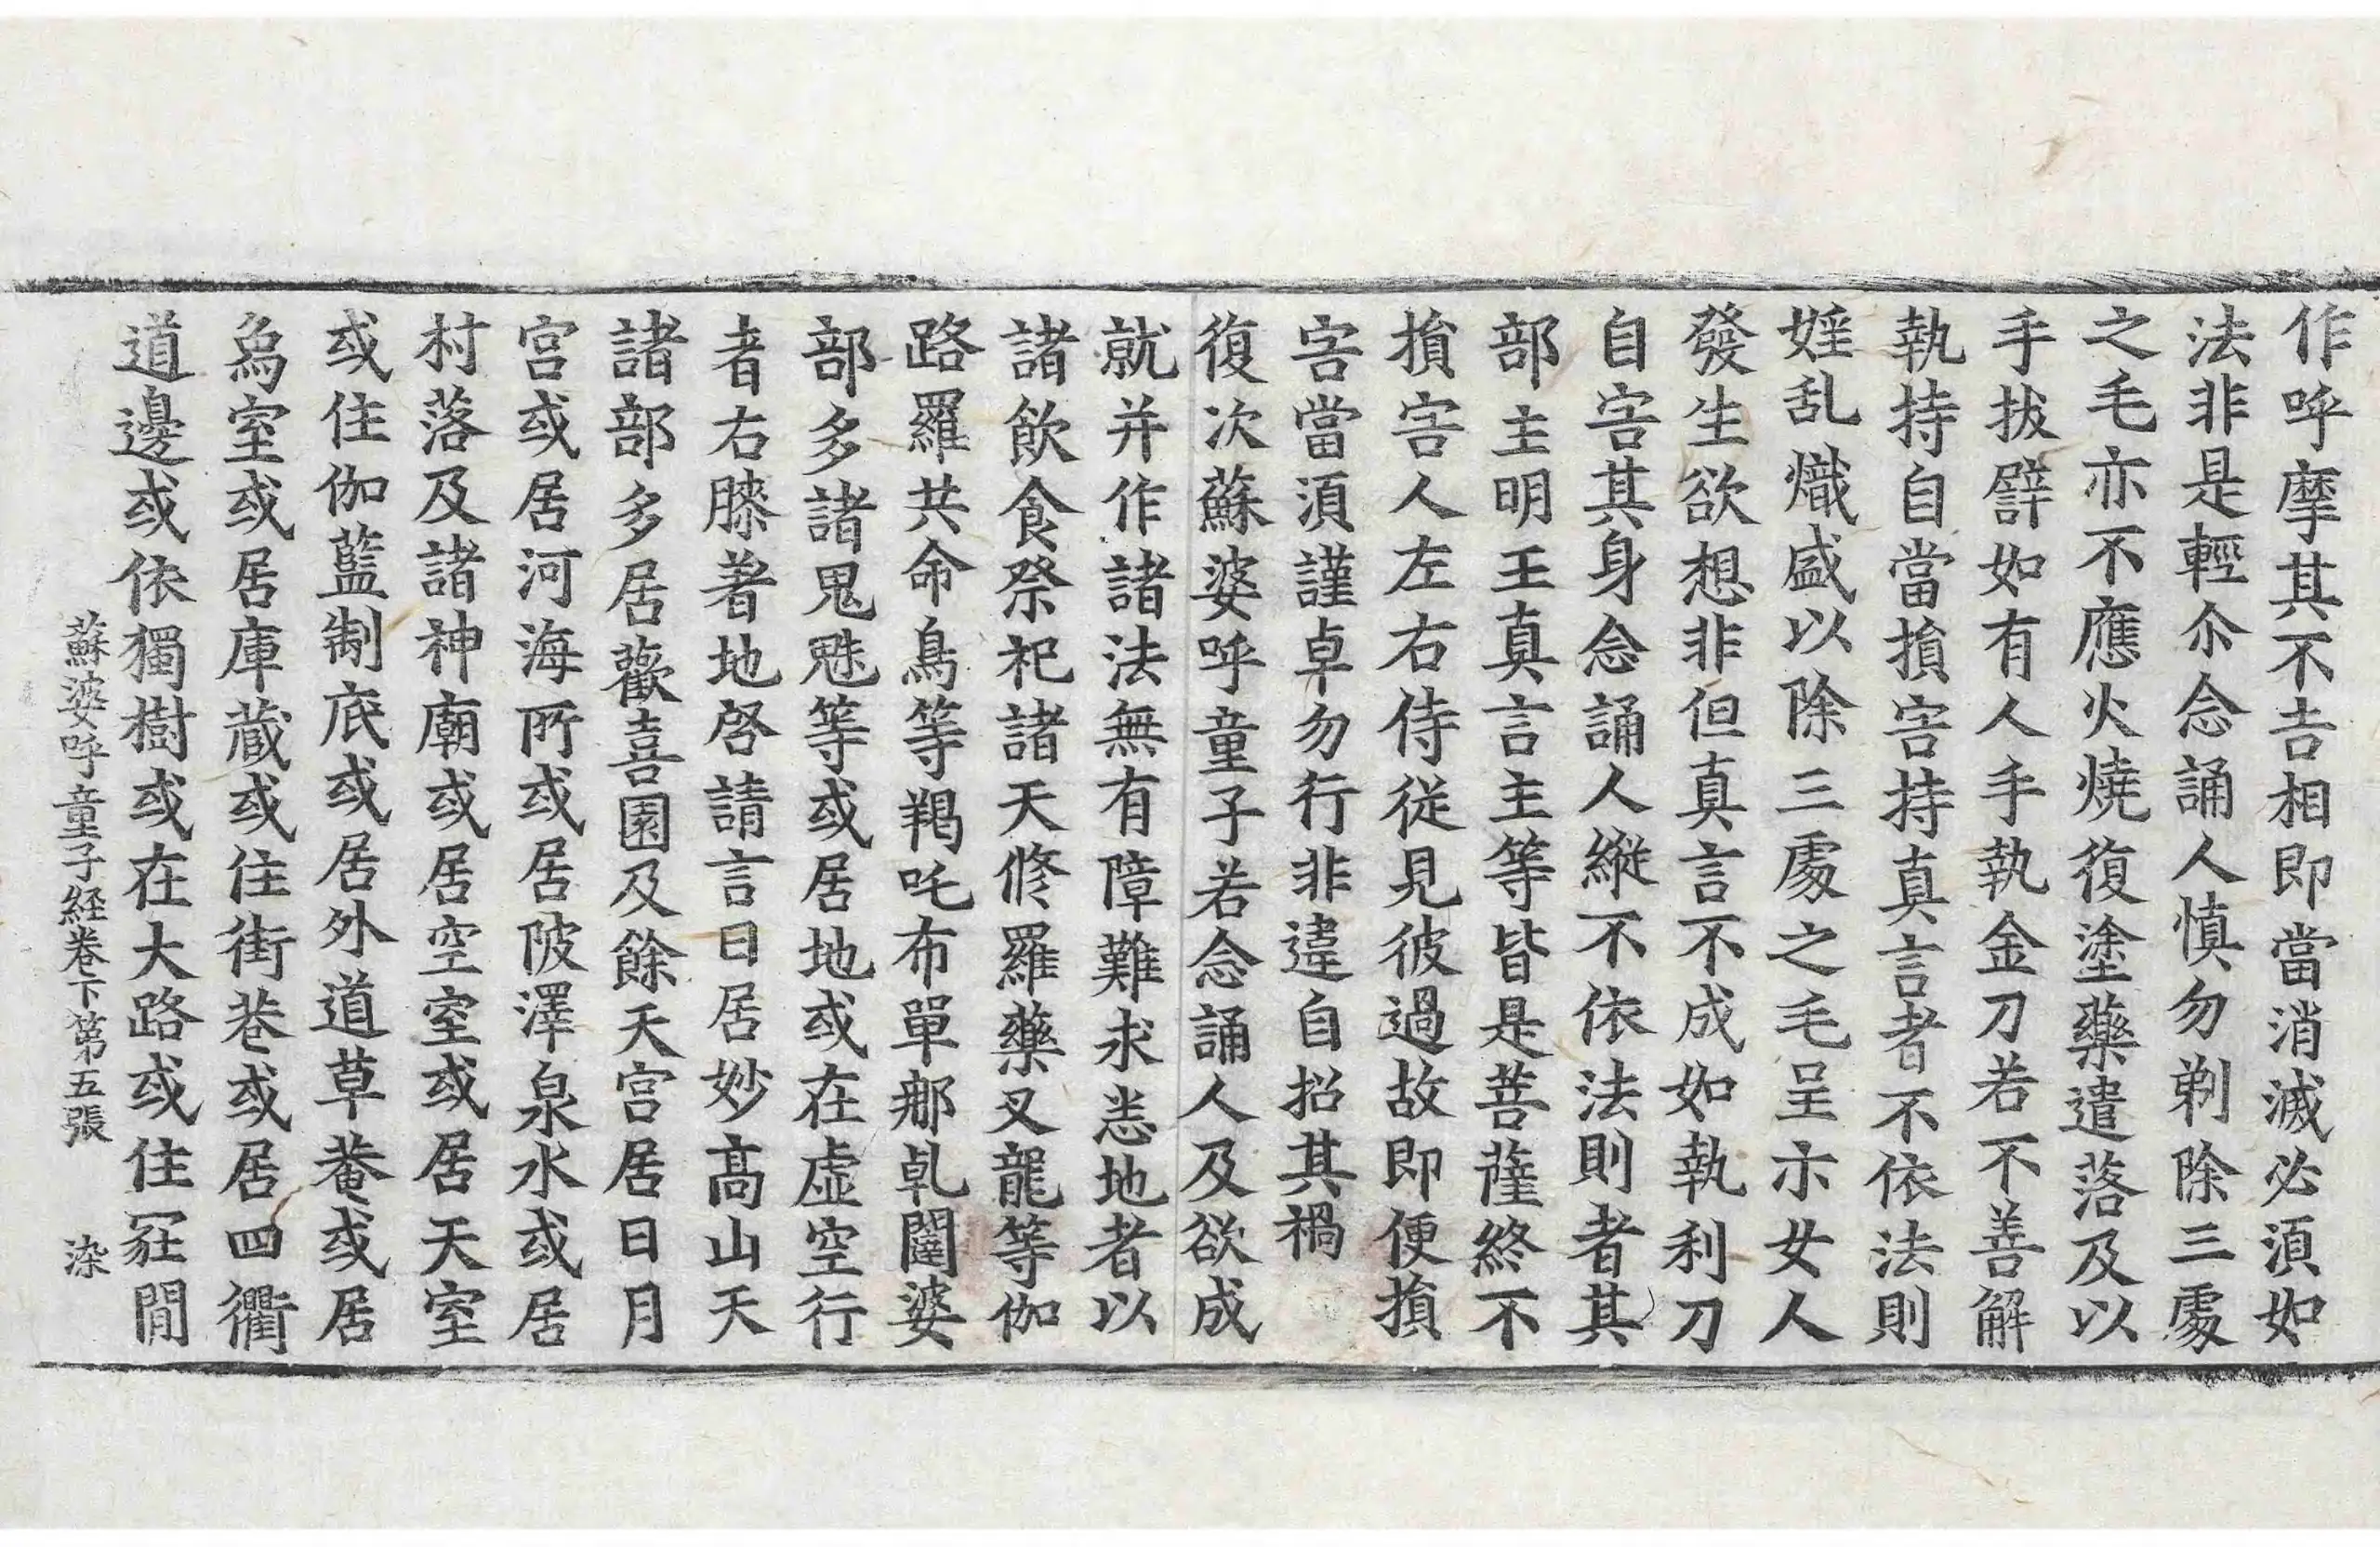 作呼摩其不吉相即當消滅必湏如
法非是輕尒念誦人慎勿剃除三處
之毛亦不應火燒復塗藥遣落及以
手拔譬如有人手執金刀若不善解
執持自當損害持真言者不依法則
婬乱熾盛以除三處之毛呈示女人
發生欲想非但真言不成如執利刀
自害其身念誦人縱不依法則者其
部主明王真言主等皆是菩薩終不
損害人左右侍從見彼過故即便損
害當湏謹卓勿行非違自招其禍
復次蘇婆呼童子若念誦人及欲成
就并作諸法無有障難求悉地者以
諸飲食祭祀諸天修羅藥叉龍等伽
路羅共命鳥等羯吒布單那乹闥婆
部多諸鬼魅等或居地或在虛空行
者右膝著地啓請言曰居妙高山天
諸部多居歡喜園及餘天宫居日月
宫或居河海所或居陂澤泉水或居
村落及諸神廟或居空室或居天室
或住伽藍制底或居外道草菴或居
烏室或居庫藏或住街巷或居四衢
道邊或依獨樹或在大路或住冢間
蘇婆呼童子経卷下第五張 染